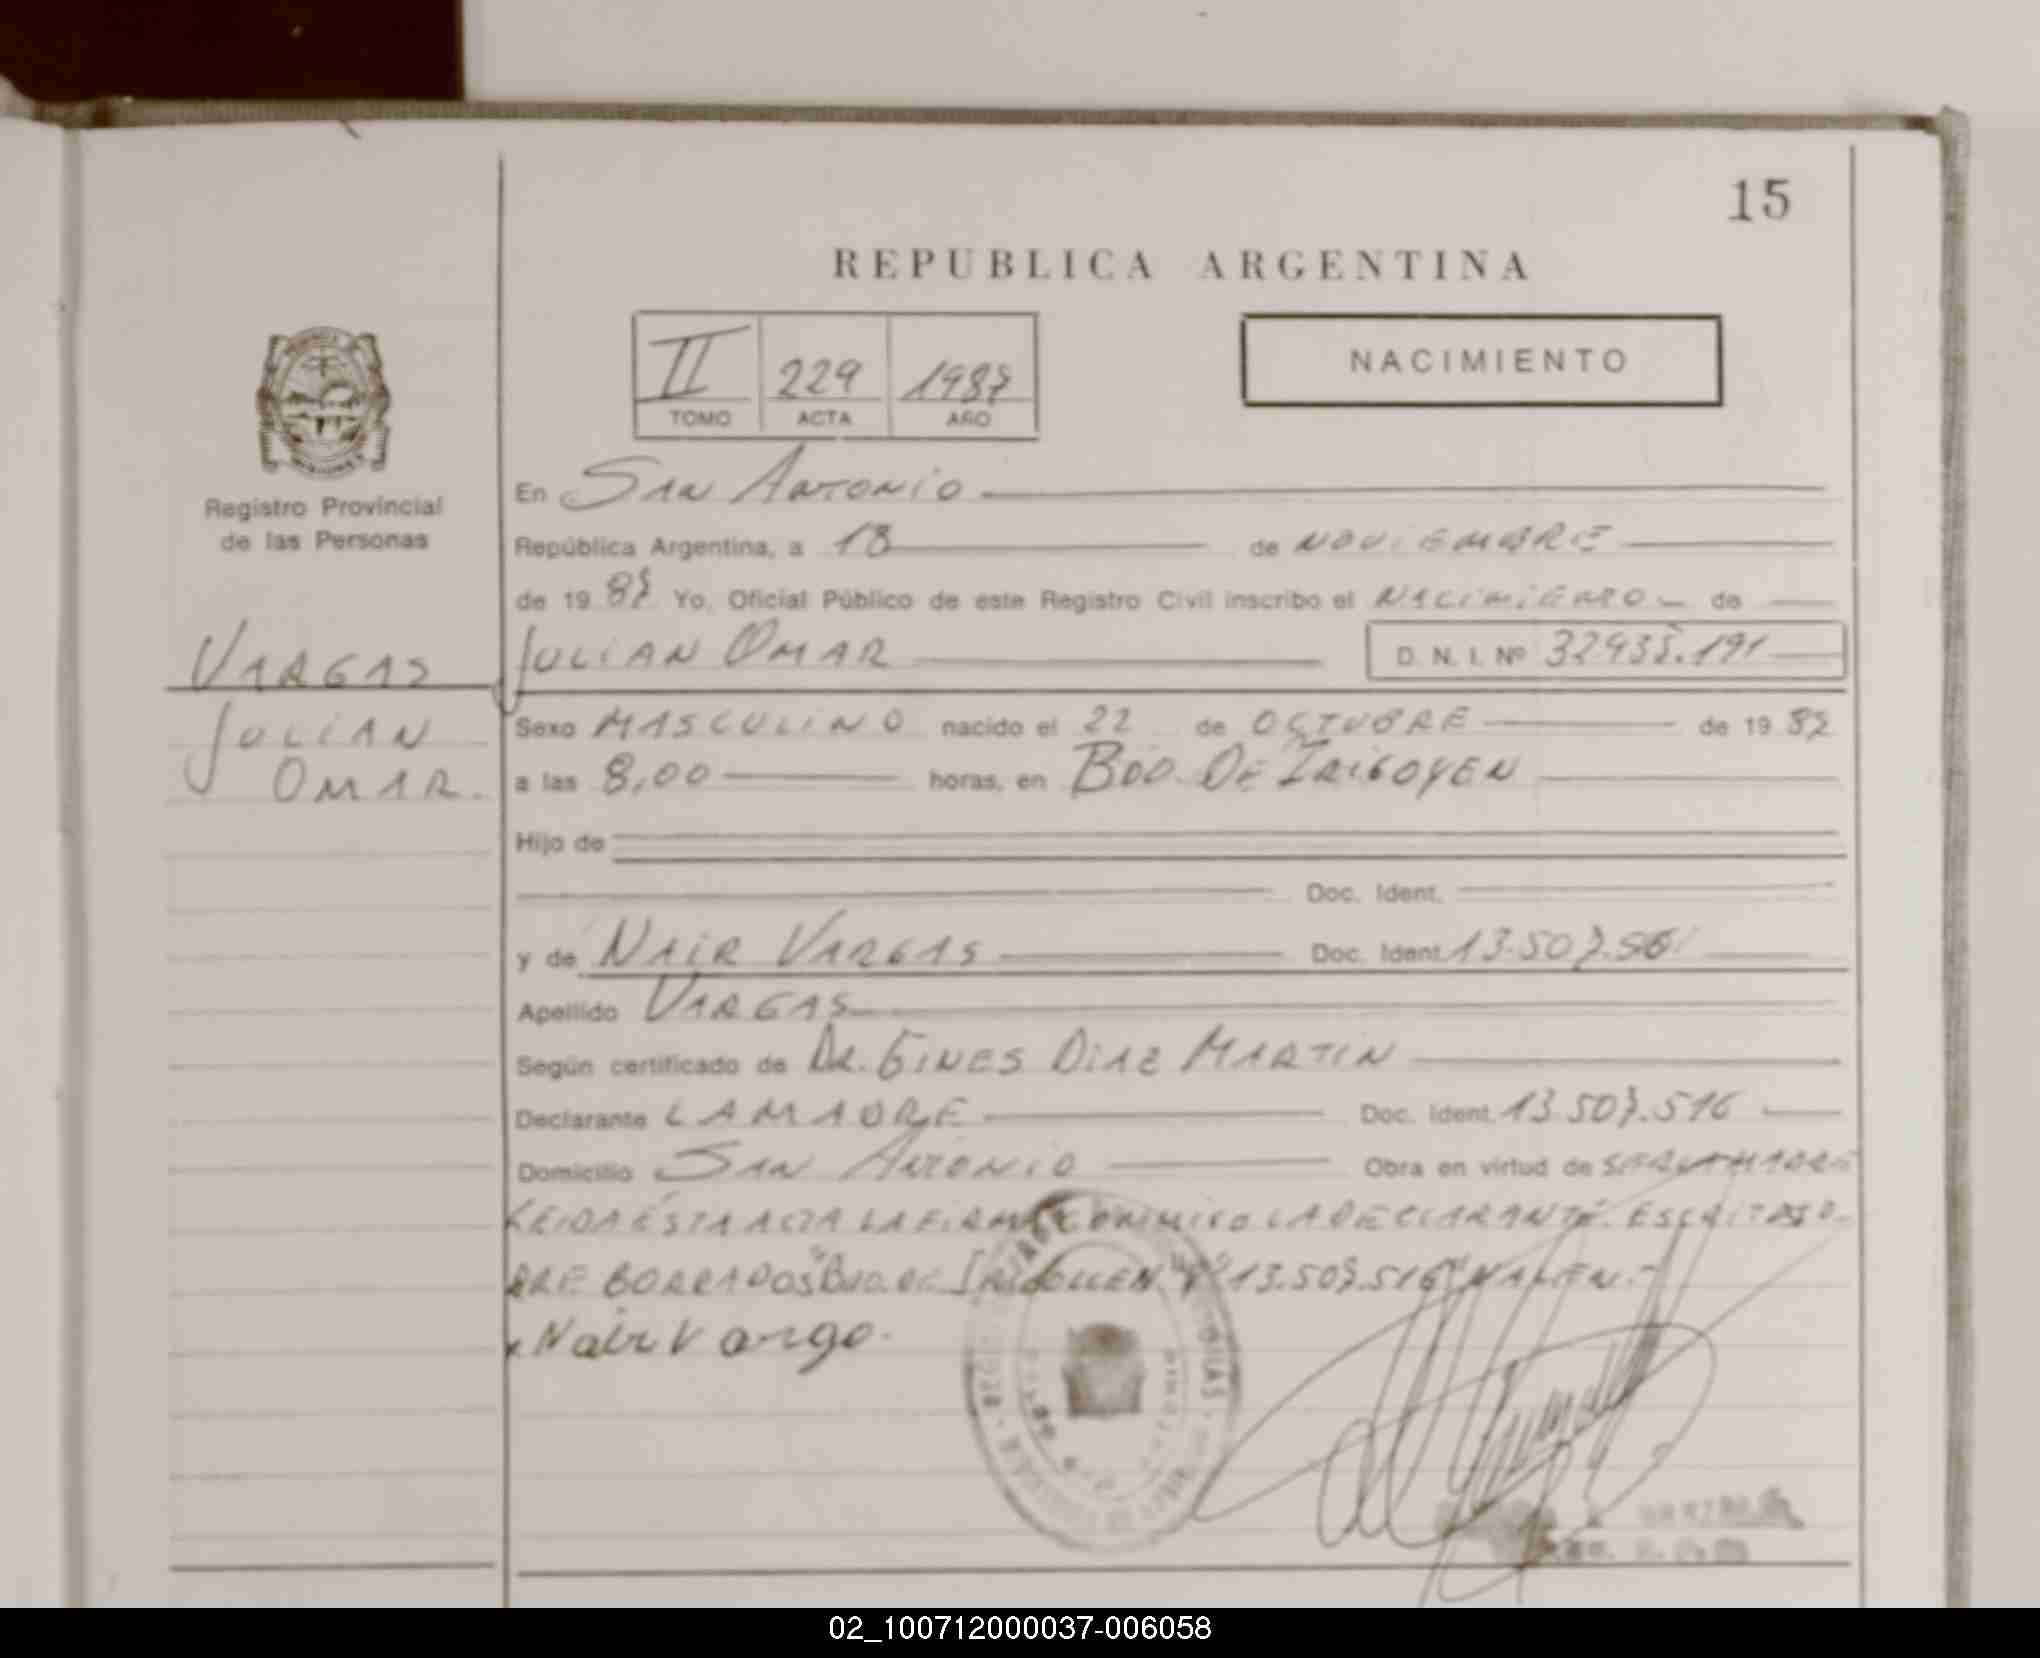 15
REPUBLICA ARGENTINA
II 229 1987
TOMO ACTA AÑO
NACIMIENTO
Registro Provincial
de las Personas
En SAN ANTONIO
República Argentina, a 18 de NOVIEMBRE
de 1987 Yo, Oficial Público de este Registro Civil inscribo el NACIMIENTO de
VARGAS JULIAN OMAR D. N. I. Nº 32935.191
JULIAN
OMAR.
Sexo MASCULINO nacido el 22 de OCTUBRE de 1987
a las 8,00 horas, en BDO. DE IRIGOYEN
Hijo de
Doc. Ident.
y de NAIR VARGAS Doc. Ident. 13.507.561
Apellido VARGAS
Según certificado de DR. GINES DIAZ MARTIN
Declarante LA MADRE Doc. Ident. 13.507.516
Domicilio SAN ANTONIO Obra en virtud de SER LA MADRE
LEIDA ÉSTA ACTA LA FIRMA CONMIGO LA DECLARANTE. ESCRITO SO-
BRE BORRADOS "BDO. DE IRIGOLLEN" Y "13.507.516" VALEN.-
x Nair Vargo.
02_100712000037-006058